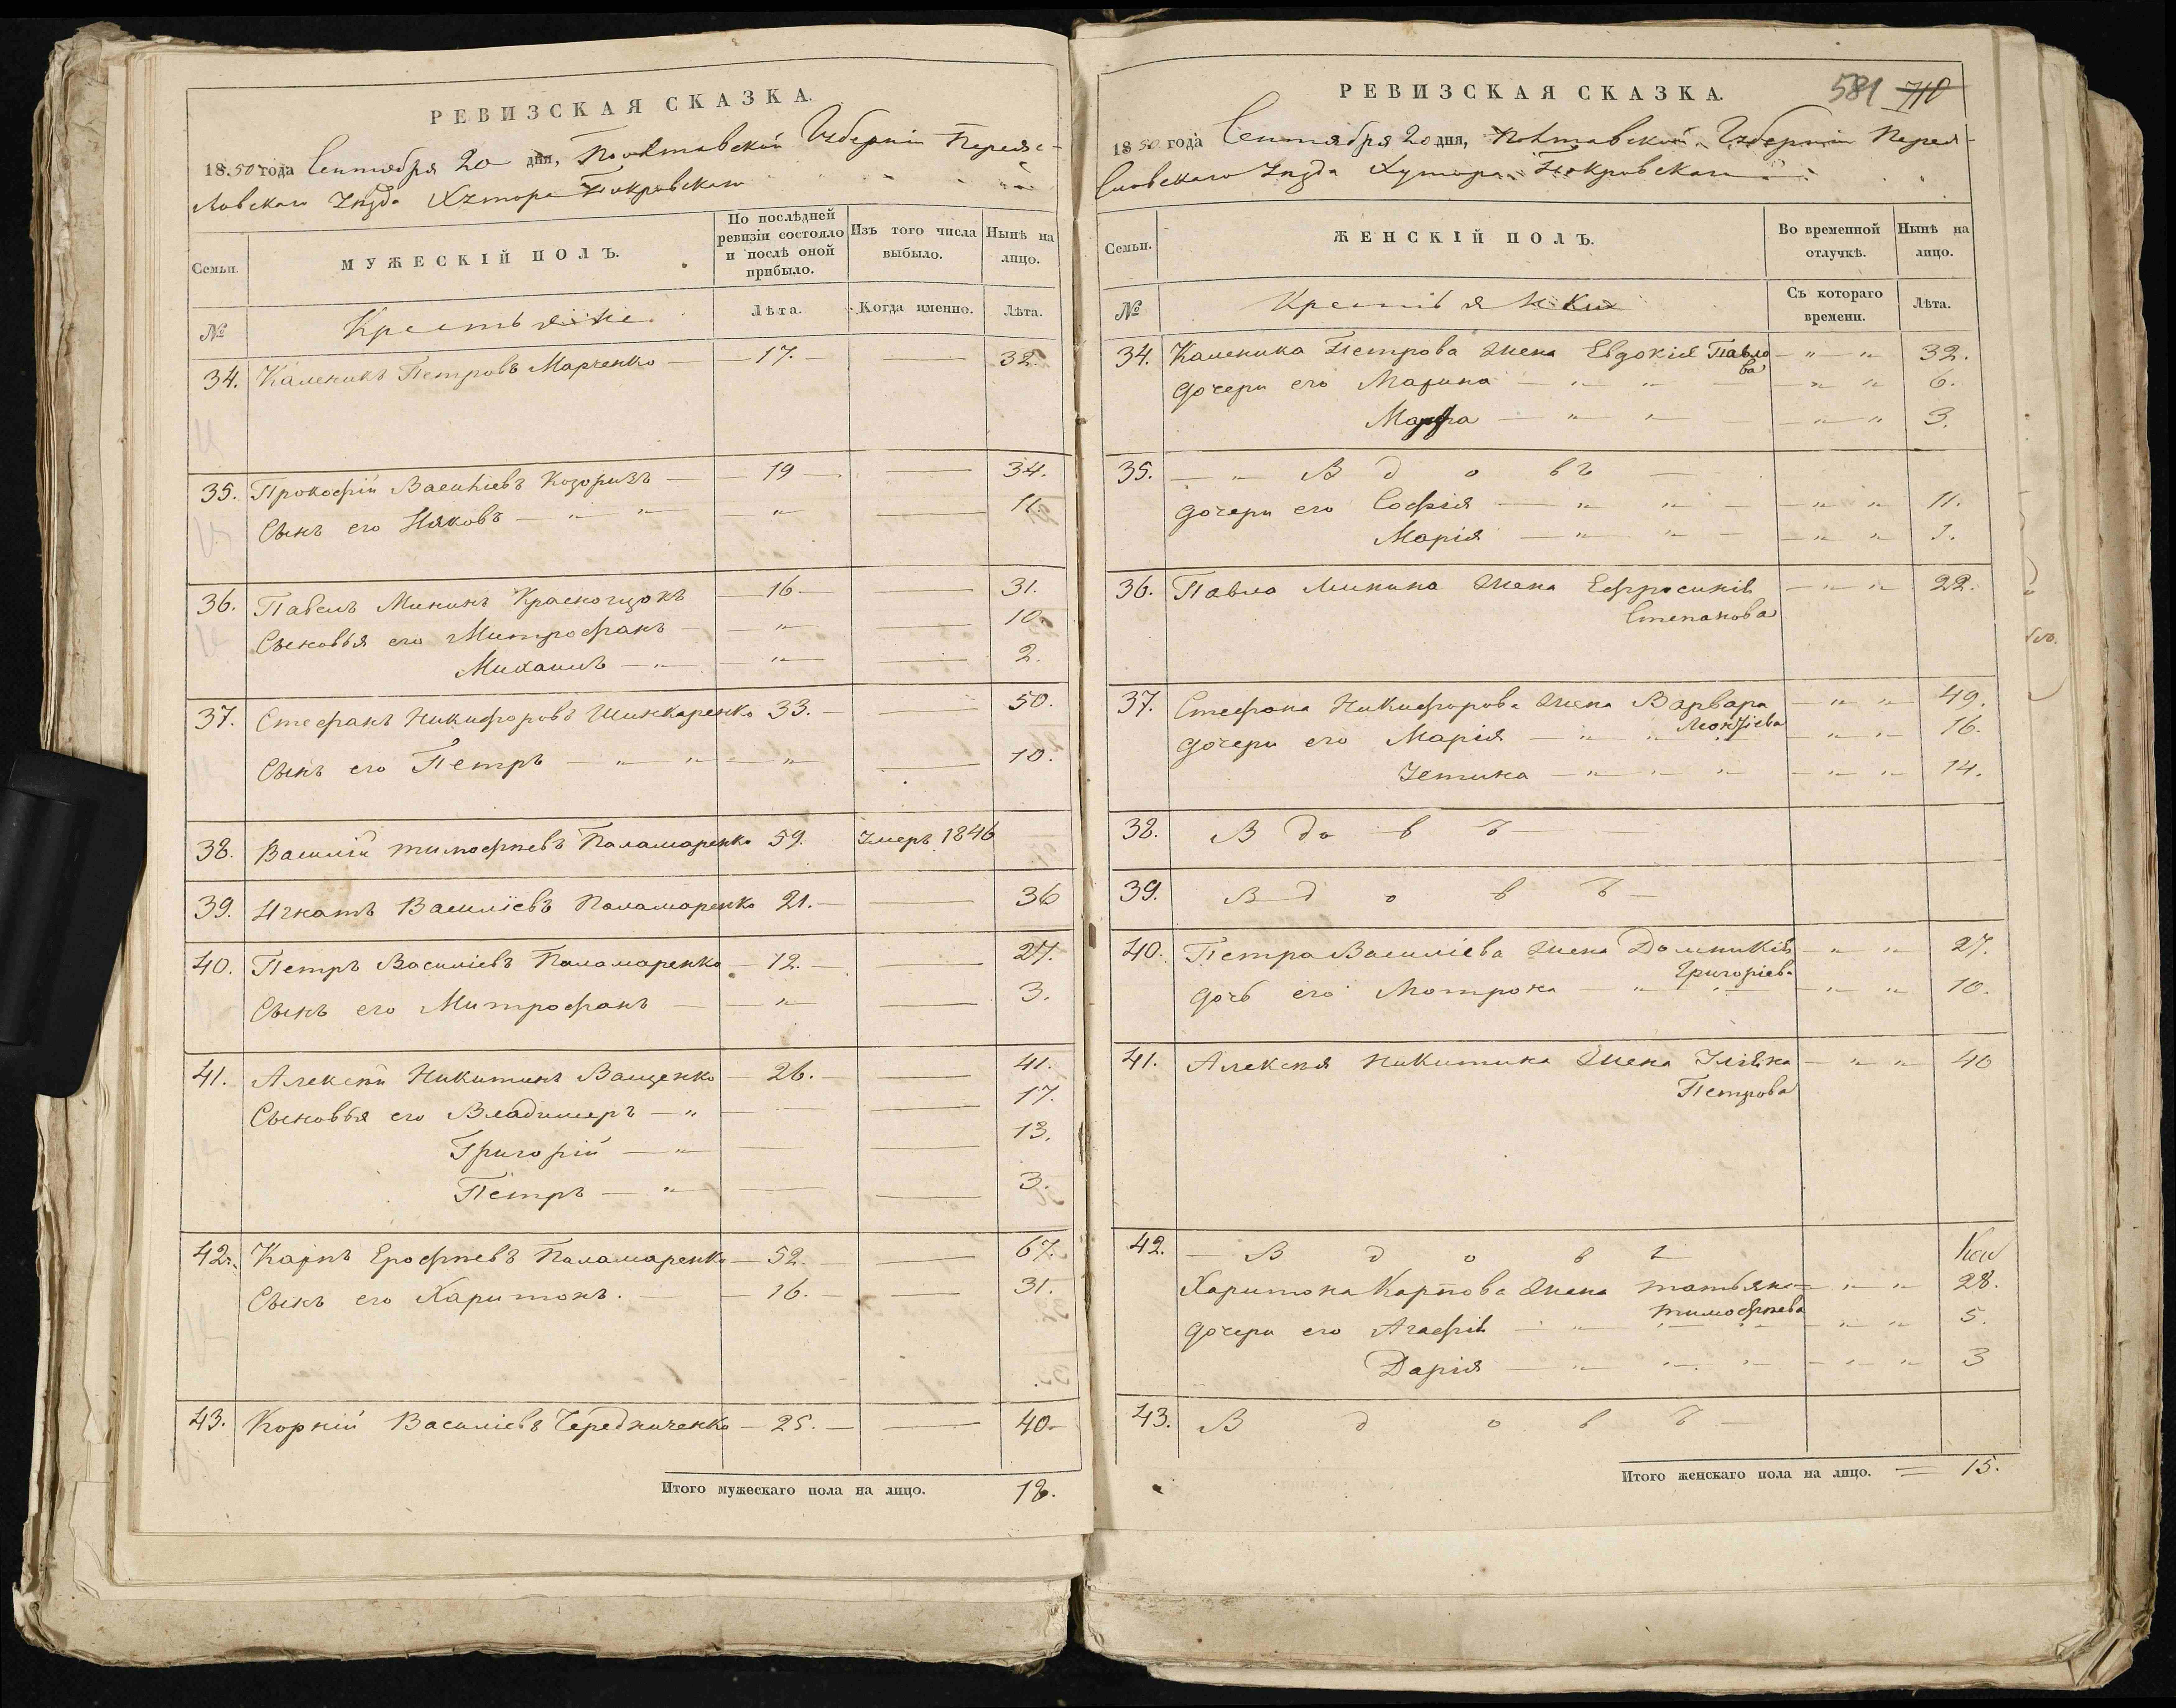 РЕВИЗСКАЯ СКАЗКА.
1850 года Сентября 20 дня, Полтавской Губерніи Переяс-
лавскаго Уѣзда Хутора Покровскаго
Семьи. МУЖЕСКІЙ ПОЛЪ. По послѣдней ревизіи состояло и послѣ оной прибыло. Изъ того числа выбыло. Нынѣ на лицо.
№ Крестьяне. Лѣта. Когда именно. Лѣта.
34. Каленикъ Петровъ Марченко — 17. — 32.
35. Прокофій Василіевъ Козоризъ — 19 — 34.
Сынъ его Яковъ — " — " — " — 11.
36. Павелъ Мининъ Красногщокъ — 16 — 31.
Сыновья его Митрофанъ — " — 10.
Михаилъ — " — " — 2.
37. Стефанъ Никифоровъ Шинкаренко 33. — 50.
Сынъ его Петръ — " — " — " — 10.
38. Василій Тимофѣевъ Паламаренко 59. Умеръ 1846
39. Игнатъ Василіевъ Паламаренко 21. — 36
40. Петръ Василіевъ Паламаренко — 12. — 27.
Сынъ его Митрофанъ — " — 3.
41. Алексѣй Никитинъ Ващенко — 26. — 41.
Сыновья его Владимеръ — " — 17.
Григорій — " — 13.
Петръ — " — 3.
42. Карпъ Ерофѣевъ Паламаренко — 52. — 67.
Сынъ его Харитонъ. — 16. — 31.
43. Корній Василіевъ Чередниченко — 25. — 40.
Итого мужескаго пола на лицо. 18.
581 710
РЕВИЗСКАЯ СКАЗКА.
1850 года Сентября 20 дня, Полтавской Губерніи Перея-
славскаго Уѣзда Хутора Покровскаго
Семьи. ЖЕНСКІЙ ПОЛЪ. Во временной отлучкѣ. Нынѣ на лицо.
№ Крестьянки Съ котораго времени. Лѣта.
34. Каленика Петрова Жена Евдокія Павло — " — " 32.
ва
Дочери его Марина — " — " — " " 6.
Марфа — " — " — " " 3.
35. — " В д о в ъ —
Дочери его Софія — " " — " " 11.
Марія — " " — " " 1.
36. Павла Минина Жена Ефросинія — " " 22.
Степанова
37. Стефана Никифорова Жена Варвара — " " 49.
Леонтіева
Дочери его Марія — " " — " " 16.
Устина — " " " — " " 14.
38. В до в ъ
39. В д о в ъ —
40. Петра Василіева Жена Домникія — " " 27.
Григоріева
Дочь его Мотрона — " — " " 10.
41. Алексѣя Никитина Жена Уліяна — " " 40
Петрова
42. — В д о в ъ
Харитона Карпова Жена Татьяна — " " 28.
Тимофѣева
Дочери его Агафія — " — " " 5.
Дарія — " " " — " " 3
43. В д о в ъ —
Итого женскаго пола на лицо. — 15.